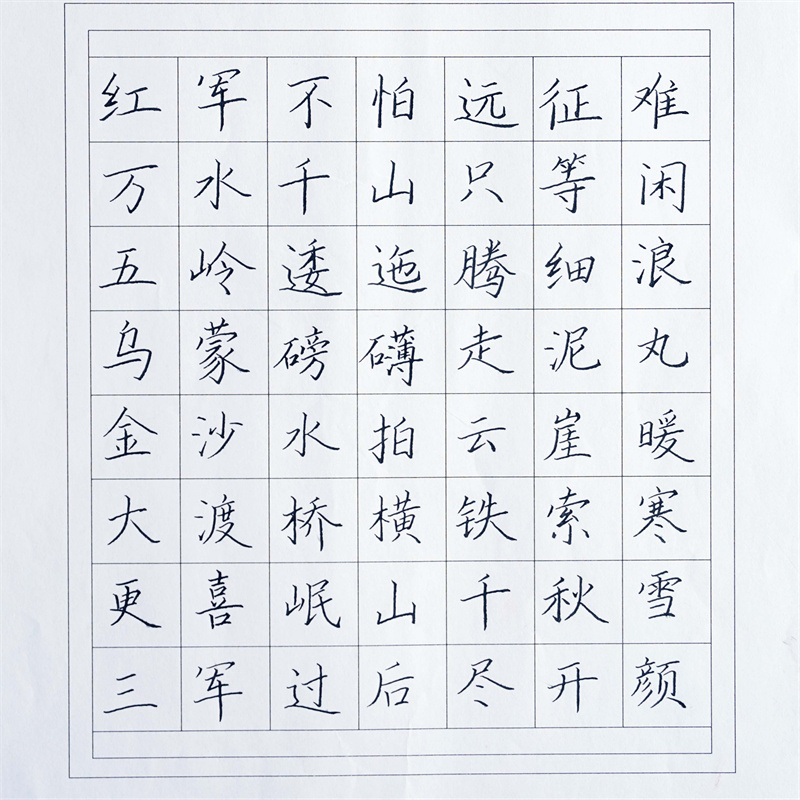 红军不怕远征难
万水千山只等闲
五岭逶迤腾细浪
乌蒙磅礴走泥丸
金沙水拍云崖暖
大渡桥横铁索寒
更喜岷山千秋雪
三军过后尽开颜